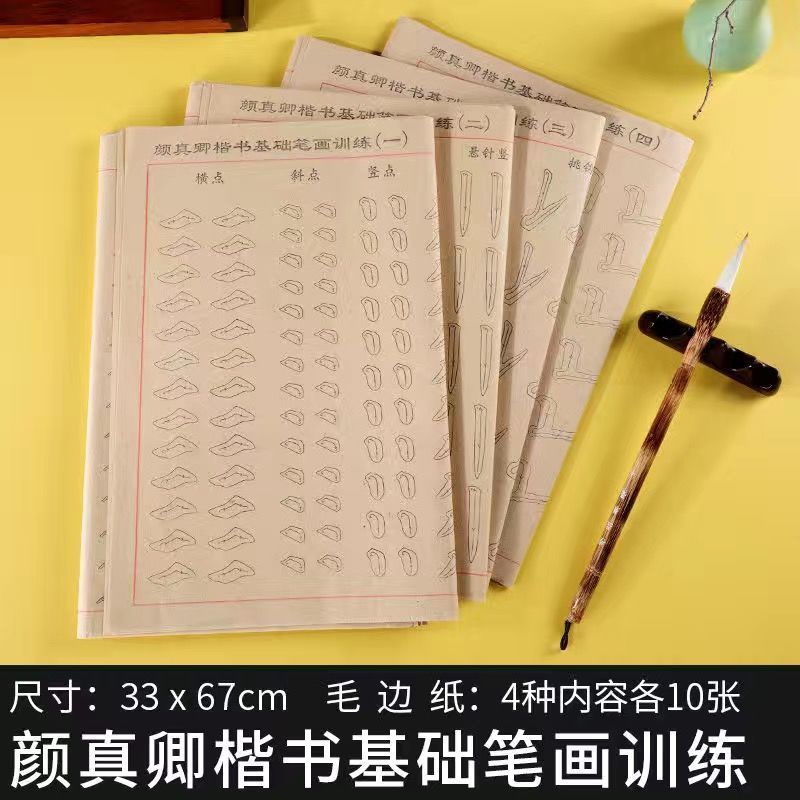 颜真卿楷书基础笔画训练(四)
颜真卿楷书基础笔画训练(三)
颜真卿楷书基础笔画训练(二)
颜真卿楷书基础笔画训练(一)
横点 斜点 竖点
悬针竖
挑
尺寸：33 x 67cm 毛边纸：4种内容各10张
颜真卿楷书基础笔画训练